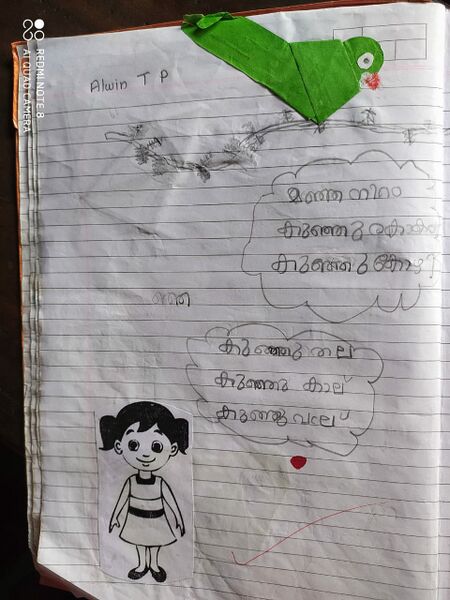 REDMI NOTE 8
AI QUAD CAMERA
Alwin T P
മഞ്ഞ നിറം
കുഞ്ഞു
കുഞ്ഞു
ഞ്ഞ
കുഞ്ഞു തല
കുഞ്ഞു കാല്
കുഞ്ഞു